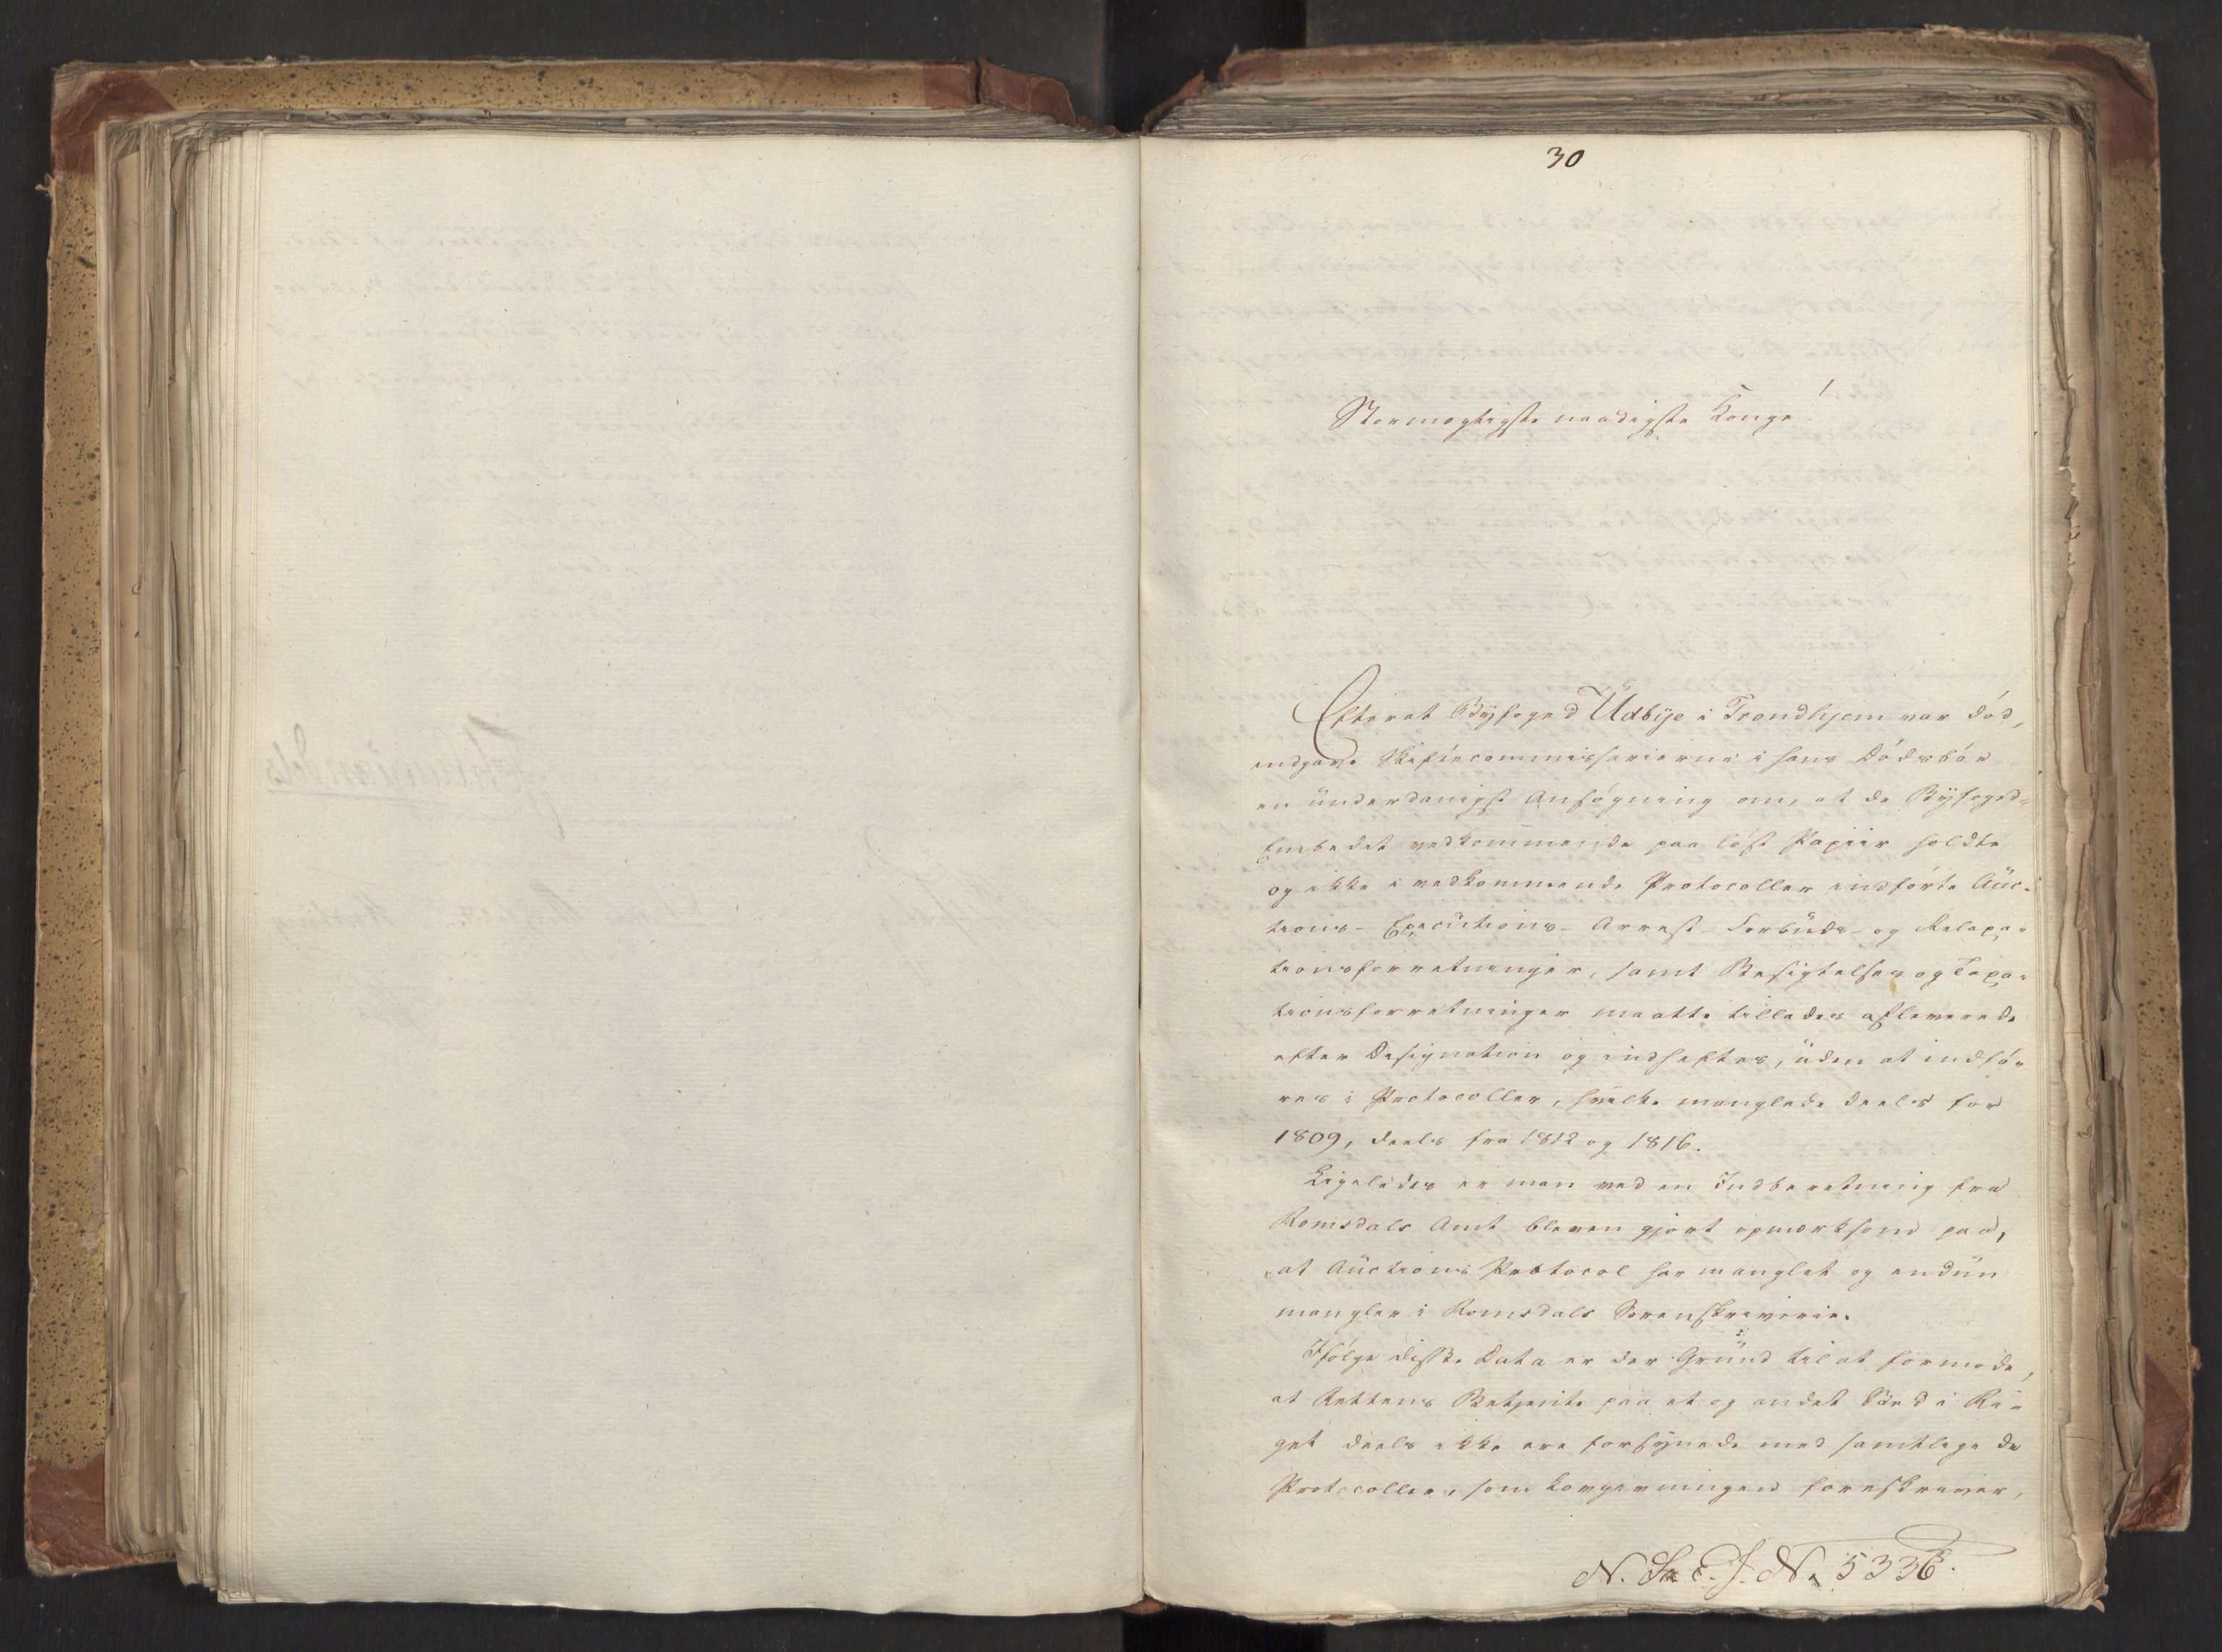 30
Stormægtigste naadigste Konge!
Efterat Byfoged Udbye i Trondhjem var död,
indgave Skiftecommissairerne i hans Dödsboe
en underdanigst Ansögning om, at de Byfoged-
Embedet vedkommende paa löst Papiir holdte
og ikke i vedkommende Protocoller indförte Auc-
tions- Executions- Arrest- Forbuds- og Relaxa-
tionsforretninger, samt Besigtelses og Taxa-
tionsforretninger maatte tillades afleverede
efter Designation og indheftes, uden at indfö-
res i Protocoller, hvilke manglede deels for
1809, deels fra 1812 og 1816.
Ligeledes er man ved en Indberetning fra
Romsdals Amt bleven gjort opmærksom paa,
at Auctions Protocol har manglet og endnu
mangler i Romsdals Sorenskriverie.
Ifölge disse Data er der Grund til at formode,
at Rettens Betjente paa et og andet Sted i Ri-
get deels ikke ere forsynede med samtlige de
Protocoller, som Lovgivningen foreskriver,
N. S. C. J. No 5336.